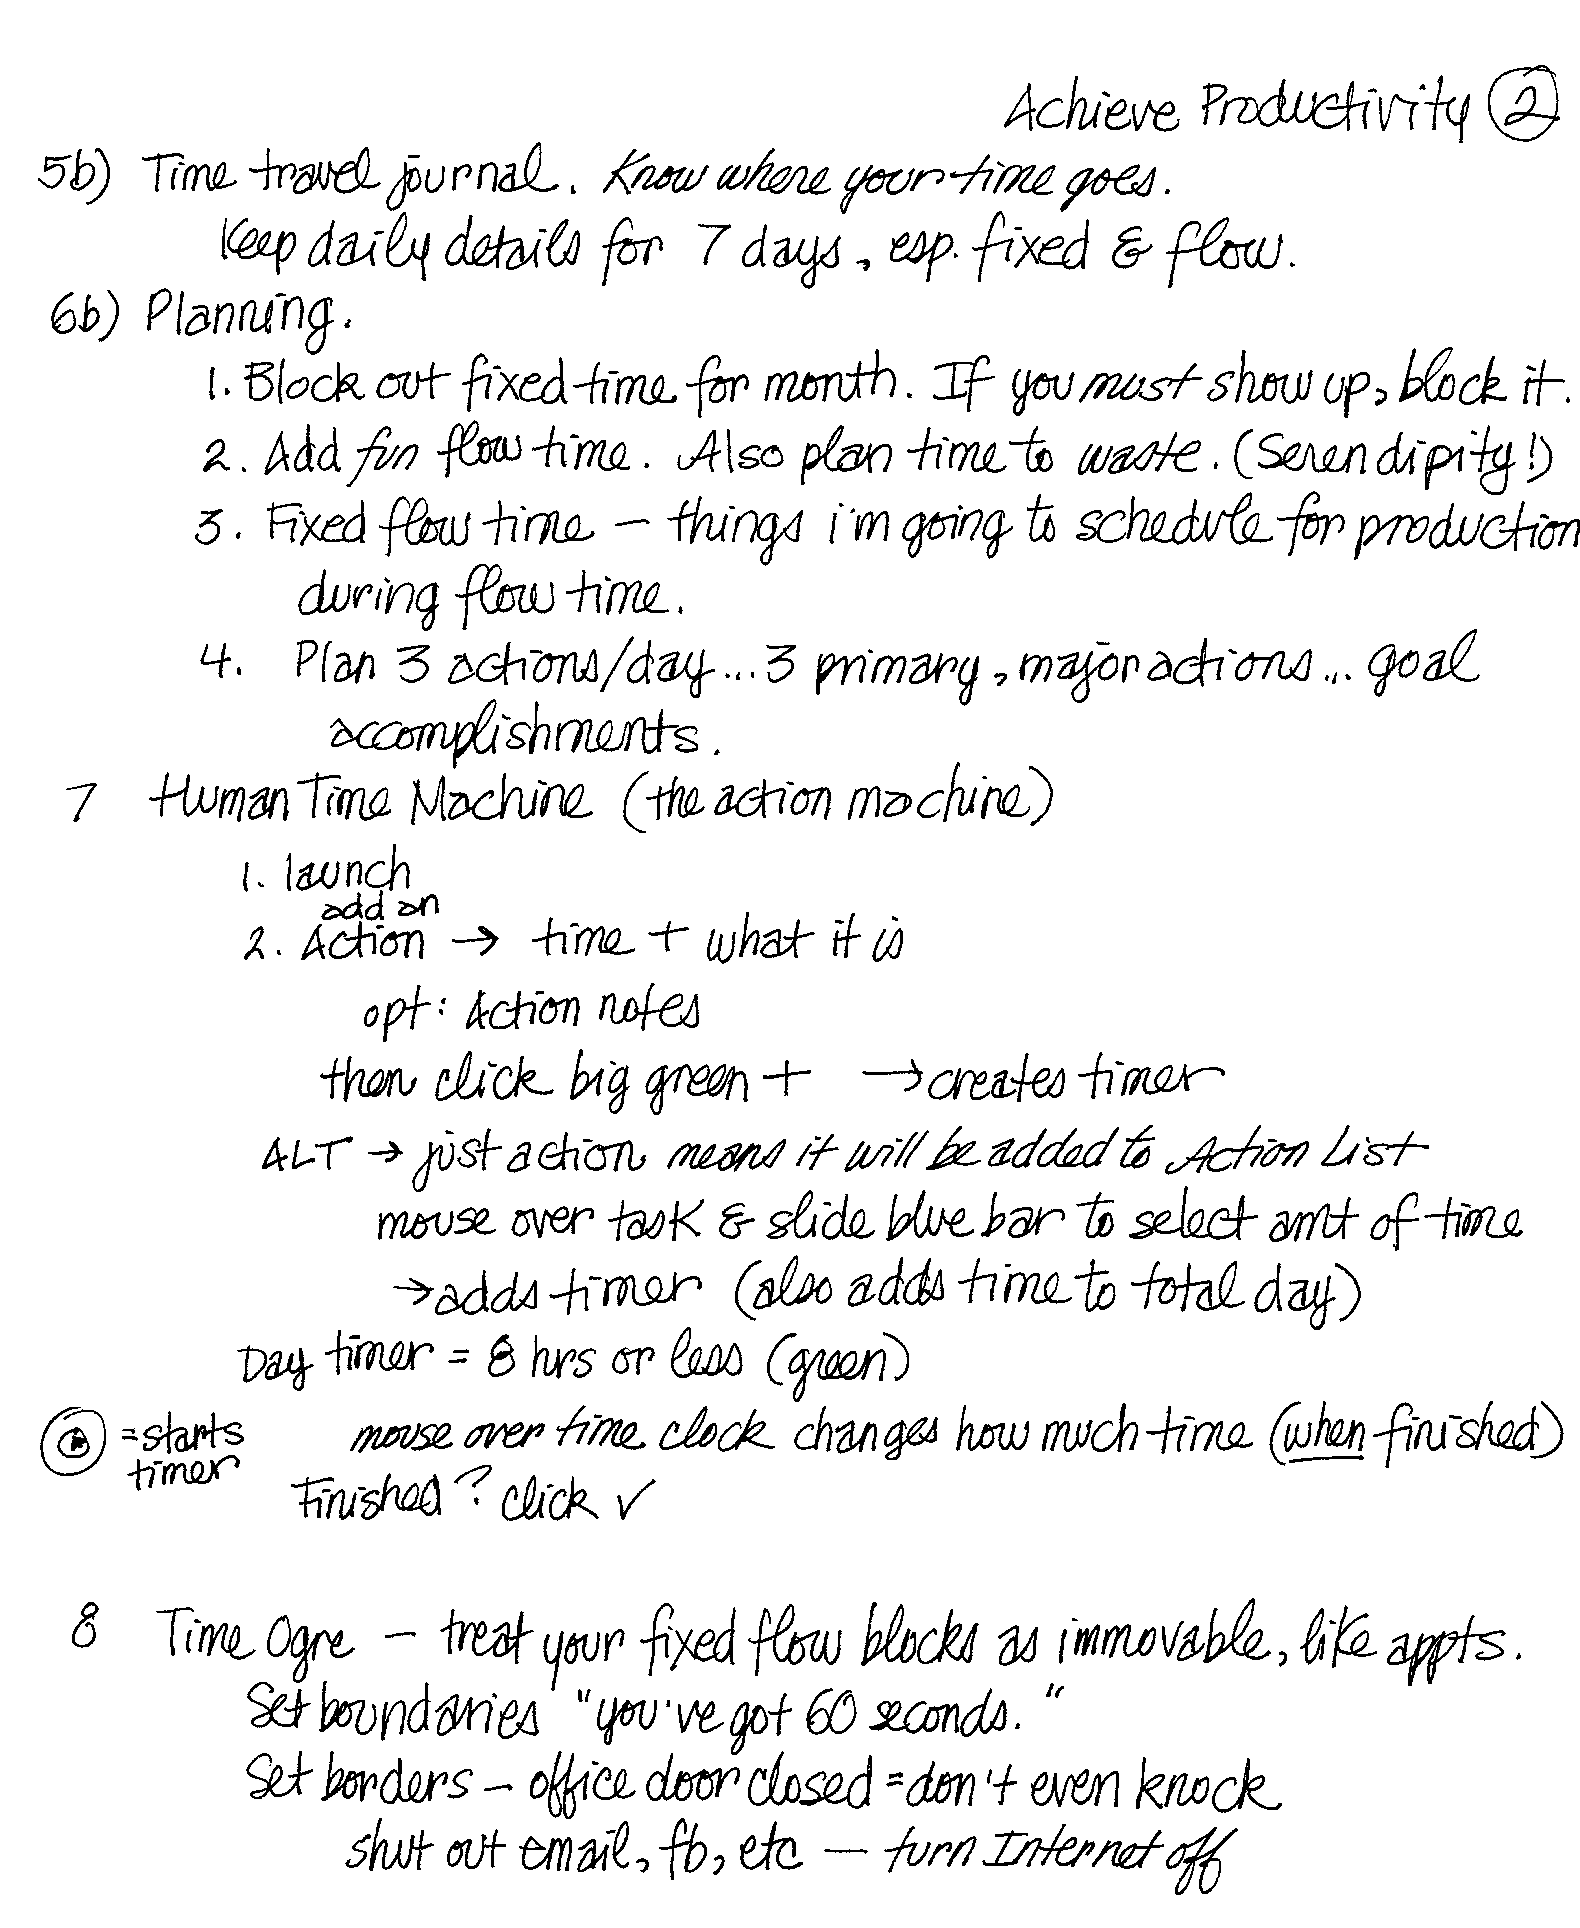 Achieve Productivity 2
5b) Time travel journal. Know where your time goes.
Keep daily details for 7 days, esp. fixed & flow.
6b) Planning.
1. Block out fixed time for month. If you must show up, block it.
2. Add fun flow time. Also plan time to waste. (Serendipity!)
3. Fixed flow time – things i'm going to schedule for production
during flow time.
4. Plan 3 actions/day...3 primary, major actions... goal
accomplishments.
7 Human Time Machine (the action machine)
1. launch
add an
2. Action → time + what it is
opt: Action notes
then click big green + → creates timer
ALT → just action means it will be added to Action List
mouse over task & slide blue bar to select amt of time
→ adds timer (also adds time to total day)
Day timer = 8 hrs or less (green)
= starts
timer
mouse over time clock changes how much time (when finished)
Finished? click ✓
8 Time Ogre – treat your fixed flow blocks as immovable, like appts.
Set boundaries "you've got 60 seconds."
Set borders – office door closed = don't even knock
shut out email, fb, etc – turn Internet off